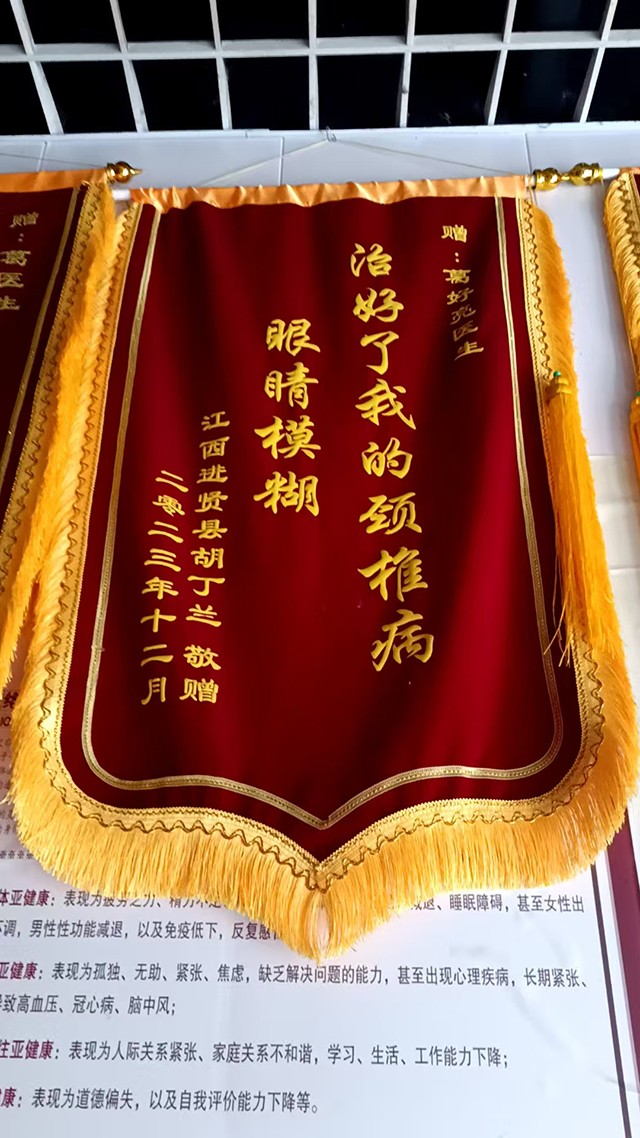 赠：葛好亮医生
治好了我的颈椎病
眼睛模糊
江西进贤县胡丁兰 敬赠
二零二三年十二月
赠：葛医生
体亚健康：表现为疲劳乏力、精力不足
减退、睡眠障碍，甚至女性出
不调，男性性功能减退，以及免疫低下，反复感
亚健康：表现为孤独、无助、紧张、焦虑，缺乏解决问题的能力，甚至出现心理疾病，长期紧张、
导致高血压、冠心病、脑中风；
往亚健康：表现为人际关系紧张、家庭关系不和谐，学习、生活、工作能力下降；
康：表现为道德偏失，以及自我评价能力下降等。